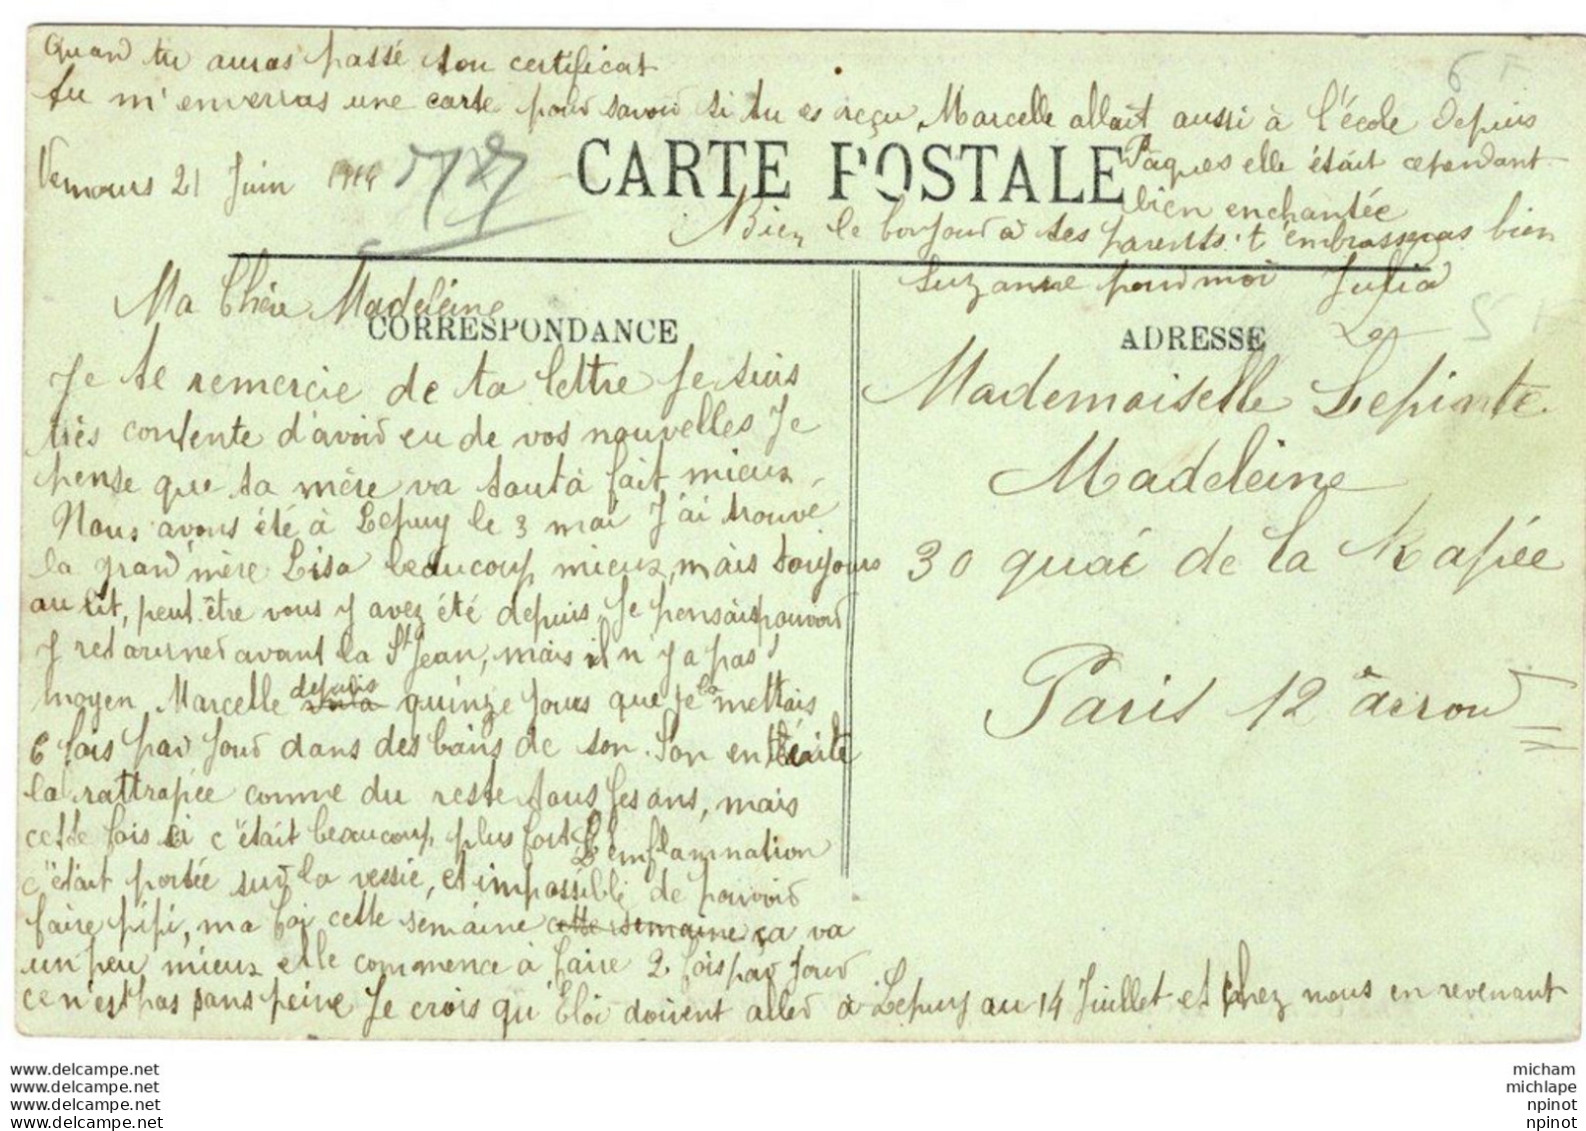 Quand tu auras passé ton certificat
tu m'enverras une carte pour savoir si tu es reçu, Marcelle allait aussi à l'école depuis
Pâques elle était cependant
bien enchantée
Nemours 21 Juin 1914
CARTE POSTALE
Bien le bonjour à tes parents. t'embrasseras bien
Suzanne pour moi Julia
Ma Chère Madeleine
CORRESPONDANCE
Je te remercie de ta lettre Je suis
très contente d'avoir eu de vos nouvelles Je
pense que ta mère va tout à fait mieux.
Nous avons été à Lepuy le 3 mai J'ai trouvé
la grand'mère Lisa beaucoup mieux, mais toujours
au lit, peut-être vous y avez été depuis, Je pensais pouvoir
y retourner avant la St Jean, mais il n'y a pas
moyen, Marcelle depuis quinze jours que je la mettais
6 fois par jour dans des bains de son. Son entérite
la rattrapée comme du reste tous les ans, mais
cette fois ci c'était beaucoup plus fort L'emflammation
c'était portée sur la vessie, et impossible de pouvoir
faire pipi, ma foi cette semaine cette semaine ça va
un peu mieux elle commence à faire 2 fois par jour
ce n'est pas sans peine Je crois qu'Eloi doivent aller à Lepuy au 14 Juillet et chez nous en revenant
ADRESSE
Mademoiselle Lepinte
Madeleine
30 quai de la Rapée
Paris 12e arron
www.delcampe.net
www.delcampe.net
www.delcampe.net
www.delcampe.net
micham
michlape
npinot
npinot